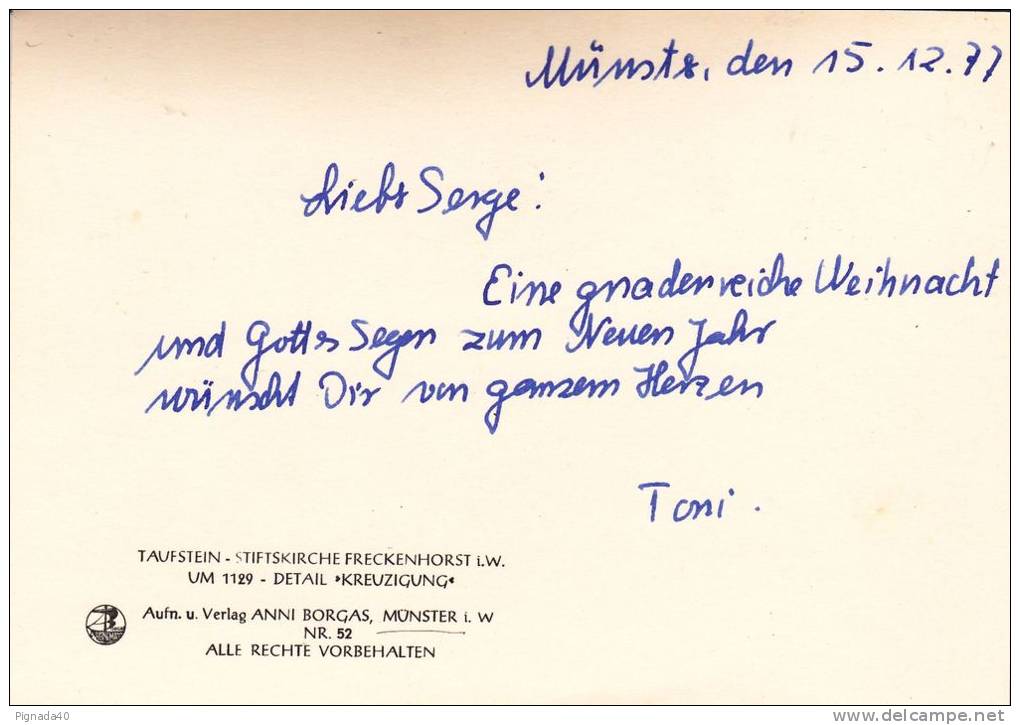 Münster, den 15.12.77
Lieber Serge!
Eine gnadenreiche Weihnacht
und Gottes Segen zum Neuen Jahr
wünscht Dir von ganzem Herzen
Toni.
TAUFSTEIN - STIFTSKIRCHE FRECKENHORST i.W.
UM 1129 - DETAIL »KREUZIGUNG«
Aufn. u. Verlag ANNI BORGAS, MÜNSTER i. W
NR. 52
ALLE RECHTE VORBEHALTEN
Pignada40
delcampe.net